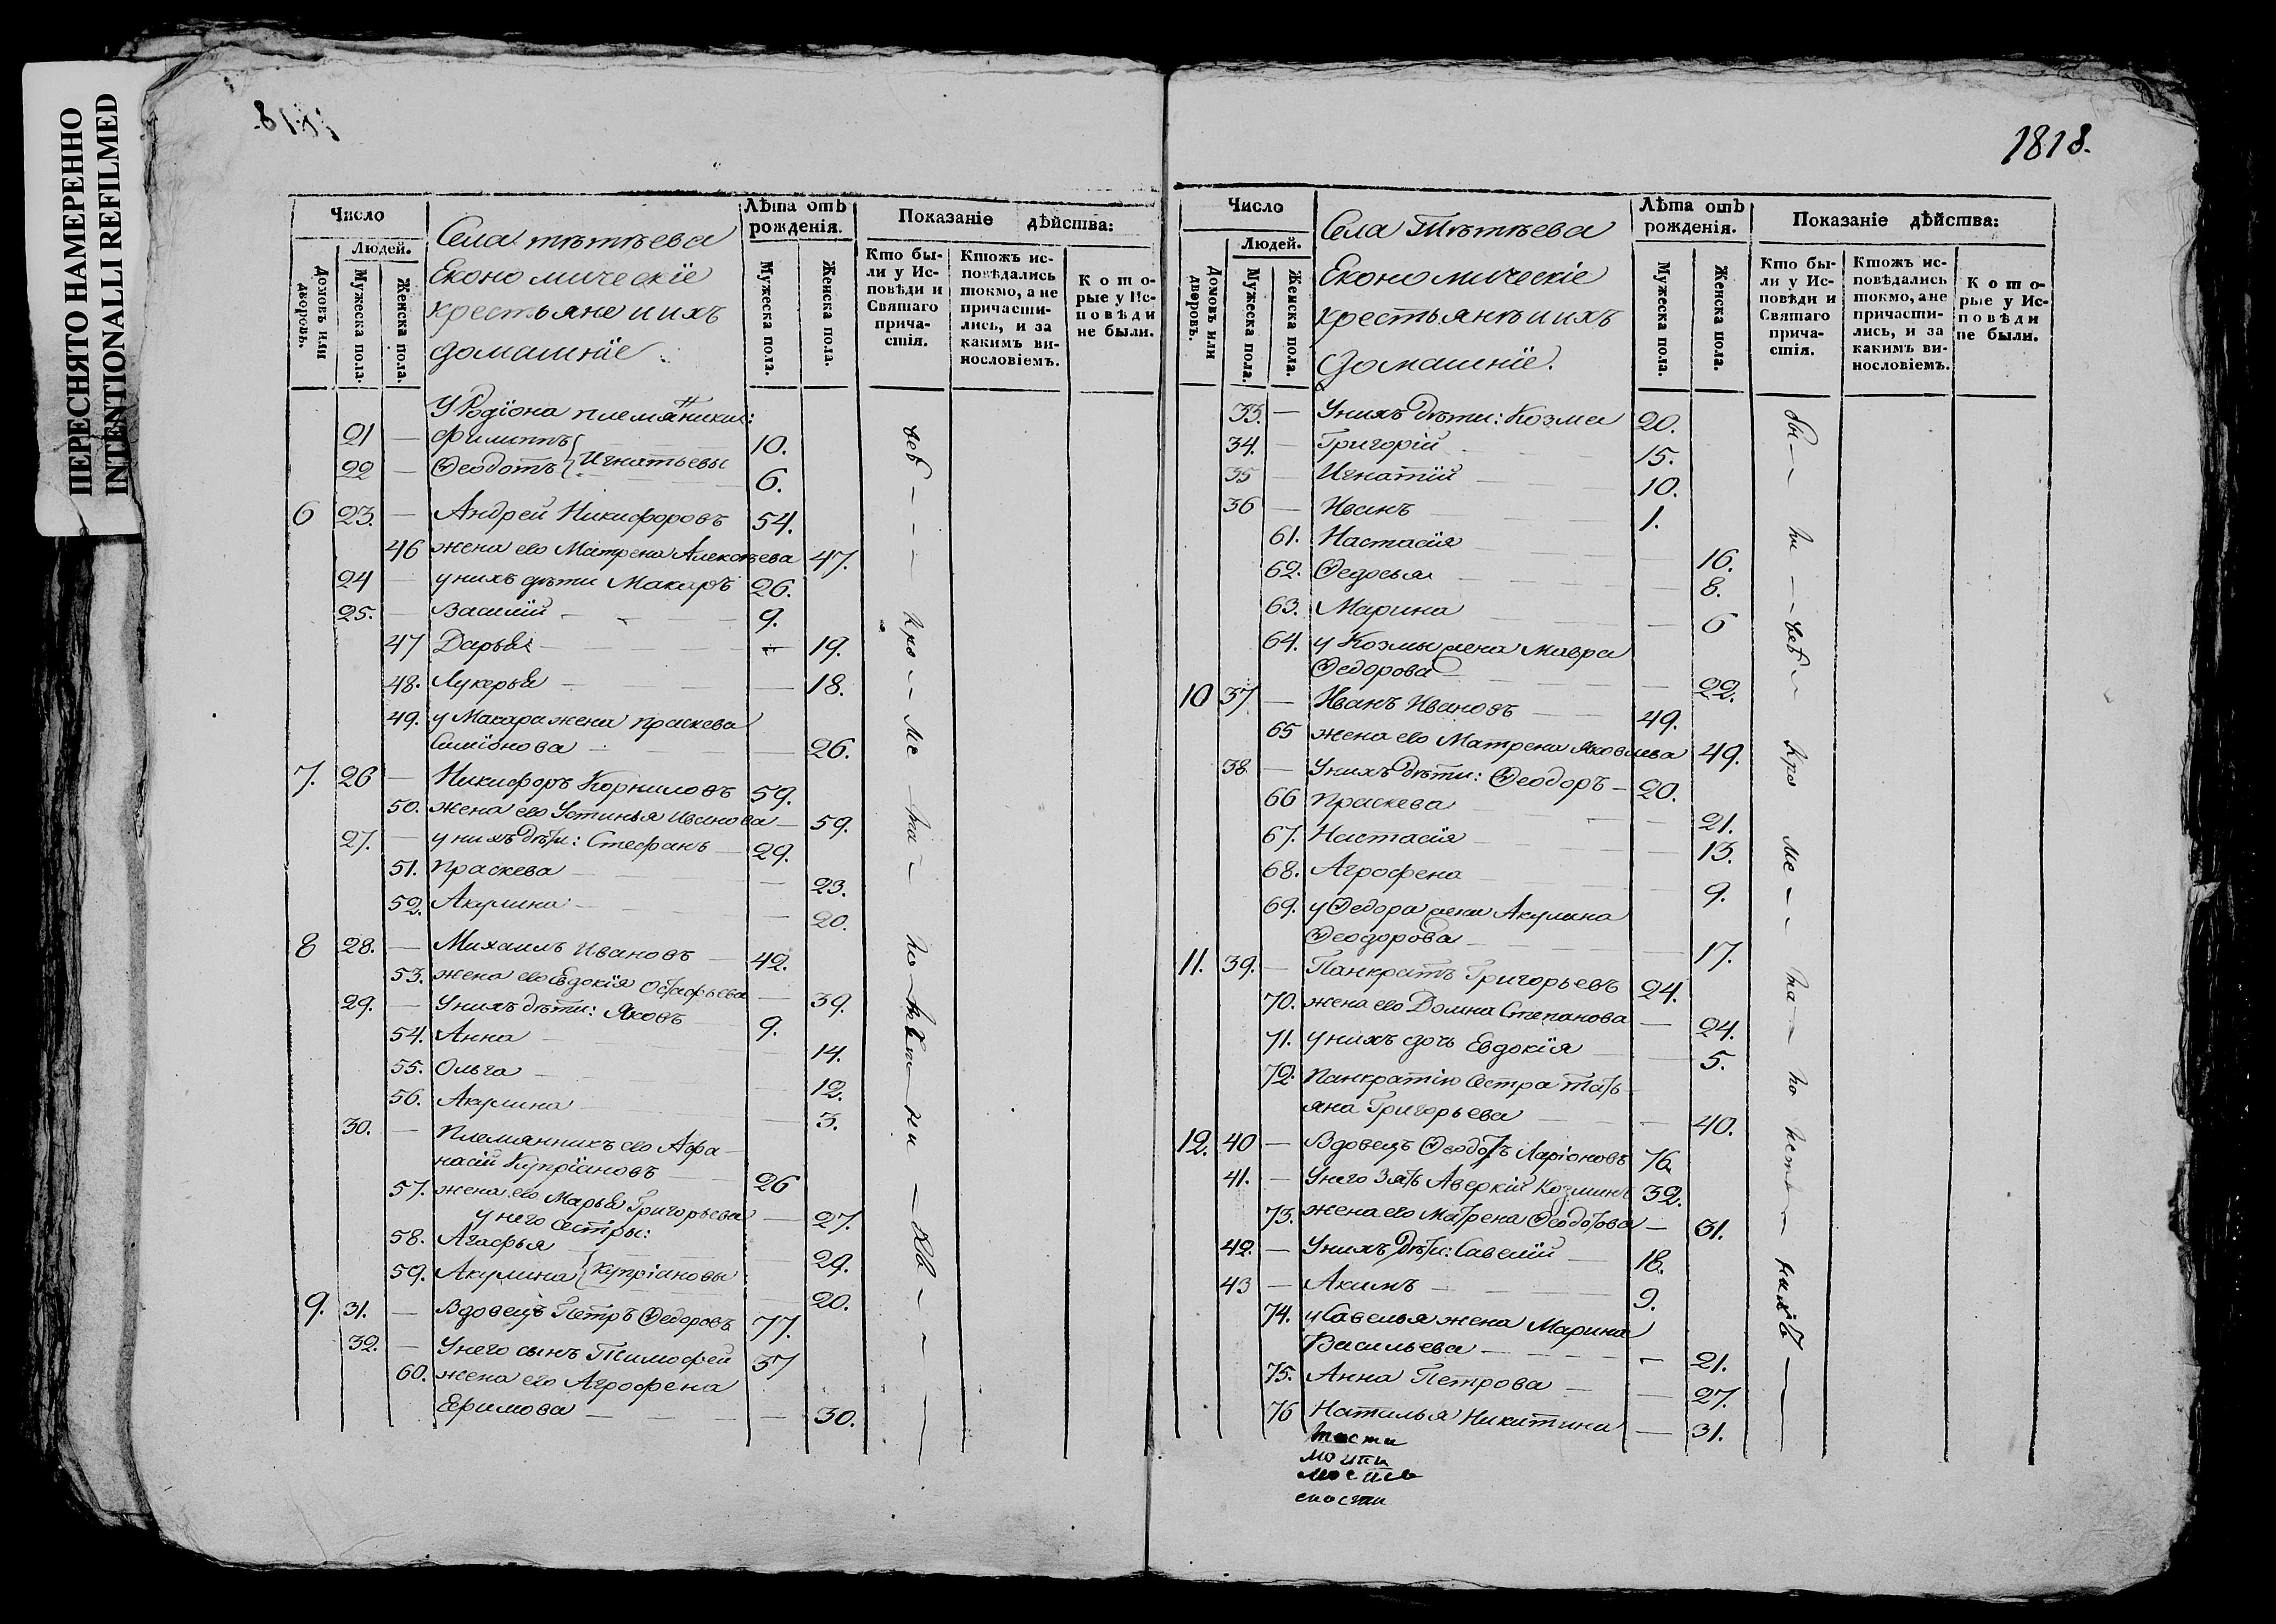 ПЕРЕСНЯТО НАМЕРЕННО
INTENTIONALLI REFILMED
Число
Людей.
Домовъ или дворовъ.
Мужеска пола.
Женска пола.
Села тѣтѣева
Економическїе
крестьяне и ихъ
домашнїе
Лѣта отъ рожденія.
Мужеска пола.
Женска пола.
Показаніе дѣйства:
Кто были у Исповѣди и Святаго причастія.
Ктожъ исповѣдались токмо, а не причастились, и за какимъ винословіемъ.
Которые у Исповѣди не были.
У Родїона племянники:
21 — Филиппъ 10.
22 — Ѳеодотъ } Игнатьевы 6.
6 23. — Андрей Никифоровъ 54.
46 жена ево Матрена Алексѣева 47.
24 — у нихъ дѣти Макаръ 26.
25. — Василїй 9.
47 Дарья 19.
48. Лукерья 18.
49. у Макара жена праскева
Симїонова 26.
7. 26 — Никифоръ Корниловъ 59.
50. жена ево Устинья Иванова 59.
27. — у нихъ дѣти: Стефанъ 29.
51. Праскева 23.
52. Акулина 20.
8 28. — Михаилъ Ивановъ 42.
53. жена ево Евдокїя Остафьева 39.
29. — У нихъ дѣти: Яковъ 9.
54. Анна 14.
55. Ольга 12.
56. Акулина 3.
30. — Племянникъ ево Афа-
насїй Купрїановъ 26
57. жена ево Марья Григорьева 27.
у него сестры:
58. Агафья 29.
59. Акулина } Купрїановы 20.
9. 31. — Вдовецъ Петръ Ѳедоровъ 77.
32. — У него сынъ Тимофей 37
60. жена его Агрофена
Ефимова 30.
1818.
Число
Людей.
Домовъ или дворовъ.
Мужеска пола.
Женска пола.
Села Тѣтѣева
Економическїе
крестьянѣ и ихъ
домашнїе.
Лѣта отъ рожденія.
Мужеска пола.
Женска пола.
Показаніе дѣйства:
Кто были у Исповѣди и Святаго причастія.
Ктожъ исповѣдались токмо, а не причастились, и за какимъ винословіемъ.
Которые у Исповѣди не были.
33. — У нихъ дѣти: Козма 20.
34. — Григорїй 15.
35 — Игнатїй 10.
36 — Иванъ 1.
61. Настасїя 16.
62. Ѳедосья 8.
63. Марина 6
64. у Козмы жена Мавра
Ѳедорова 22.
10 37 — Иванъ Ивановъ 49.
65 жена ево Матрена Яковлева 49.
38 — У нихъ дѣти: Ѳеодоръ 20.
66 Праскева 21.
67. Настасїя 13.
68. Агрофена 9.
69. у Ѳедора жена Акулина
Ѳеодорова 17.
11. 39. — Панкратъ Григорьевъ 24.
70. жена ево Домна Степанова 24.
71. у нихъ дочь Евдокїя 5.
72. Панкратїю сестра Тать-
яна Григорьева 40.
12. 40 — Вдовецъ Ѳеодотъ Ларїоновъ 76
41. — У него зять Аверкїй Козминъ 32.
73. жена ево Матрена Ѳеодотова 31.
42. — У нихъ дѣти: Савелїй 18.
43 — Акимъ 9.
74. у Савелья жена Марина
Васильева 21.
75. Анна Петрова 27.
76 Наталья Никитина 31.